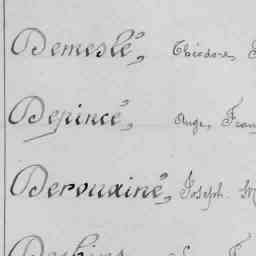 Demeslé, Théodore,
Depincé, Ange, Fran
Derouainé, Joseph M